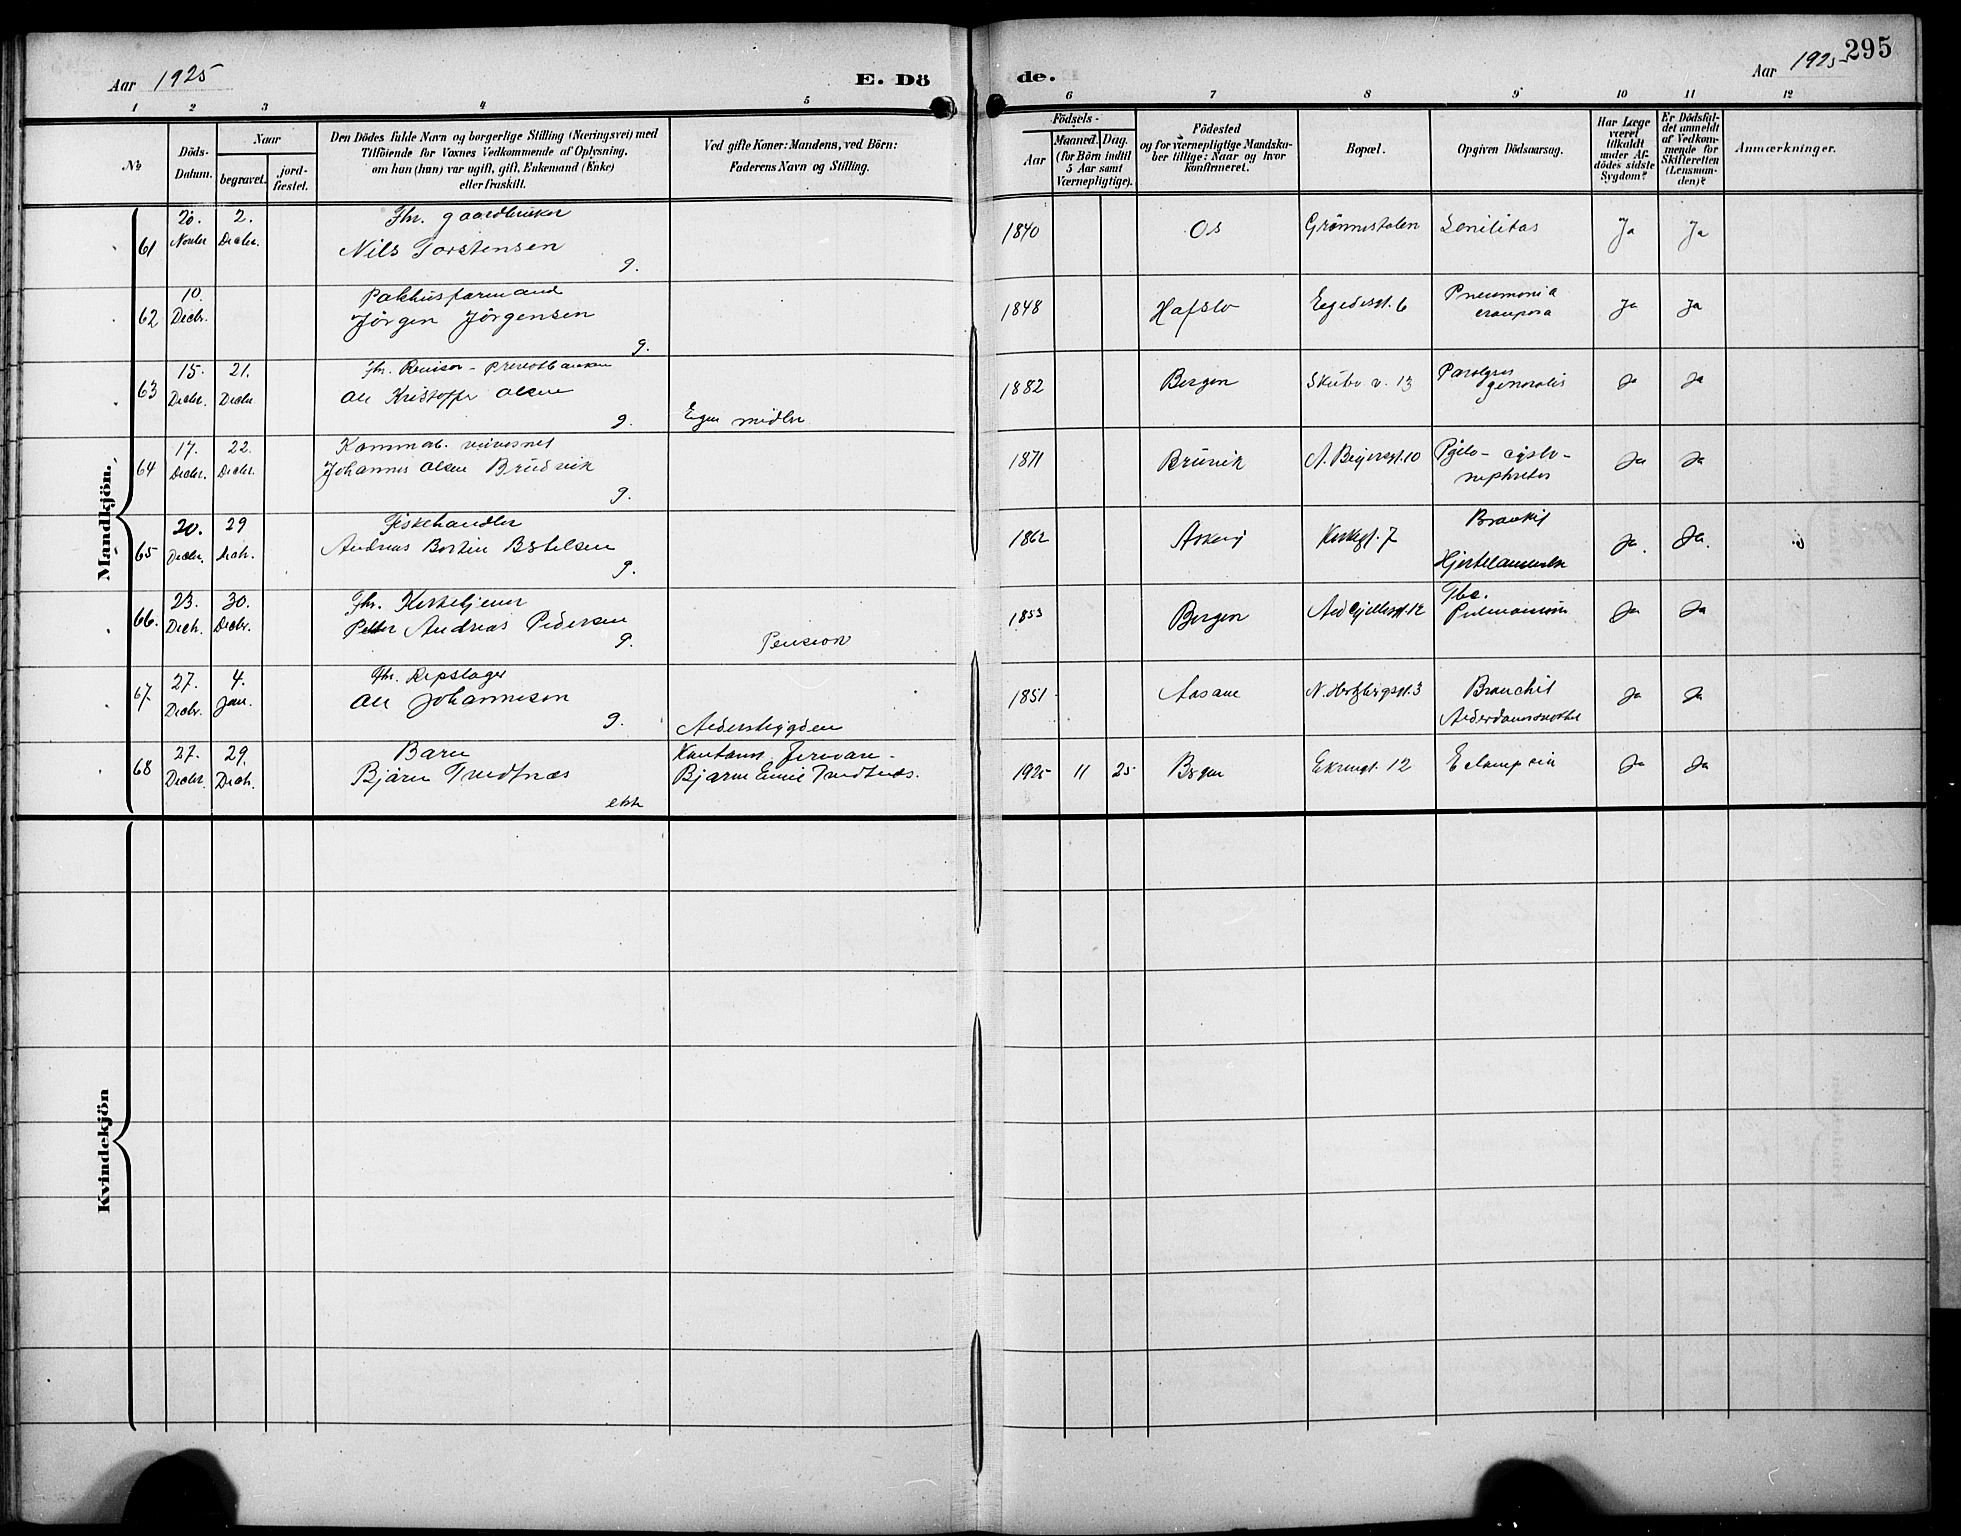 Aar 1925
E. Dö
de.
Aar 1925
295
1 2 3 4 5 6 7 8 9 10 11 12
No
Döds-Datum.
Naar
begravet.
jord-fæstet.
Den Dödes fulde Navn og borgerlige Stilling (Næringsvei) med
Tilföiende for Voxnes Vedkommende af Oplysning,
om han (hun) var ugift, gift, Enkemand (Enke)
eller fraskilt.
Ved gifte Koner: Mandens, ved Börn:
Faderens Navn og Stilling.
Födsels-
Aar
Maaned. Dag.
(for Börn indtil
5 Aar samt
Værnepligtige).
Födested
og for værnepligtige Mandska-
ber tillige: Naar og hvor
konfirmeret.
Bopæl.
Opgiven Dödsaarsag.
Har Læge
været
tilkaldt
under Af-
dödes sidste
Sygdom?
Er Dödsfal-
det anmeldt
af Vedkom-
mende for
Skifteretten
(Lensman-
den)?
Anmærkninger.
Mandkjön.
61 20. Novbr 2. Decbr. Fhr. gaardbruker
Nils Torstensen g. 1840 Os Grönnestolen Senilitas Ja Ja
62 10. Decbr. Pakhusformand
Jörgen Jörgensen g. 1848 Hafslo Egedesgt. 6 Pneumonia crouposa Ja Ja
63 15. Decbr. 21. Decbr Fhr. Revisor - Privatbanken
Ole Kristoffer Olsen g. Egne midler 1882 Bergen Skubv. 13 Paralyses generalis Ja Ja
64 17. Decbr. 22. Decbr. veivesnet
Johannes Olsen Brudvik g. 1871 Bruvik A. Beyersgt. 10 Pyelo-cysto-
nephrites Ja Ja
65 20. Decbr. 29 Decbr. Fiskehandler
Andreas Bertelsen g. 1862 Askøy Kirkegt. 7 Bronkit
Ja. Ja.
66. 23. Decb. 30. Decbr. Fhr. Kirketjener
Petter Andreas Pedersen g. Pension 1853 Bergen 12 Tbc.
Pulmonum Ja Ja
67. 27. Decbr. 4. Jan. Fhr. Repslager
Ole Johannesen g. Alderstrygden 1851 Aasane N. Hertzbergsgt. 3 Bronchit
Ja Ja
68 27. Decbr. 29. Decb. Barn
Bjarne Tredtnæs ekte Kontorist, Jernvare-
Bjarne Emil Tredtnæs. 1925 11 25 Bergen Ekrengt. 12 Eclampsia Ja Ja
Kvindekjön